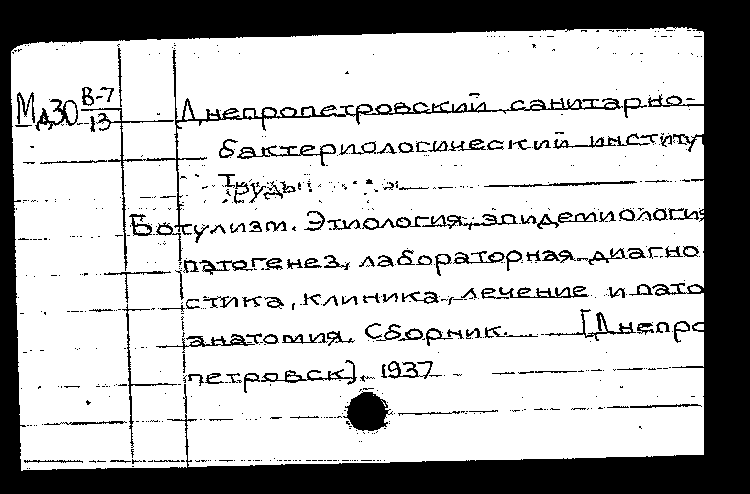 Мд30 В-7/13 Днепропетровский санитарно-
бактериологический институт
Труды
Ботулизм. Этиология, эпидемиология
патогенез, лабораторная диагно
стика, клиника, лечение и пато
анатомия. Сборник. [Днепро
петровск]. 1937